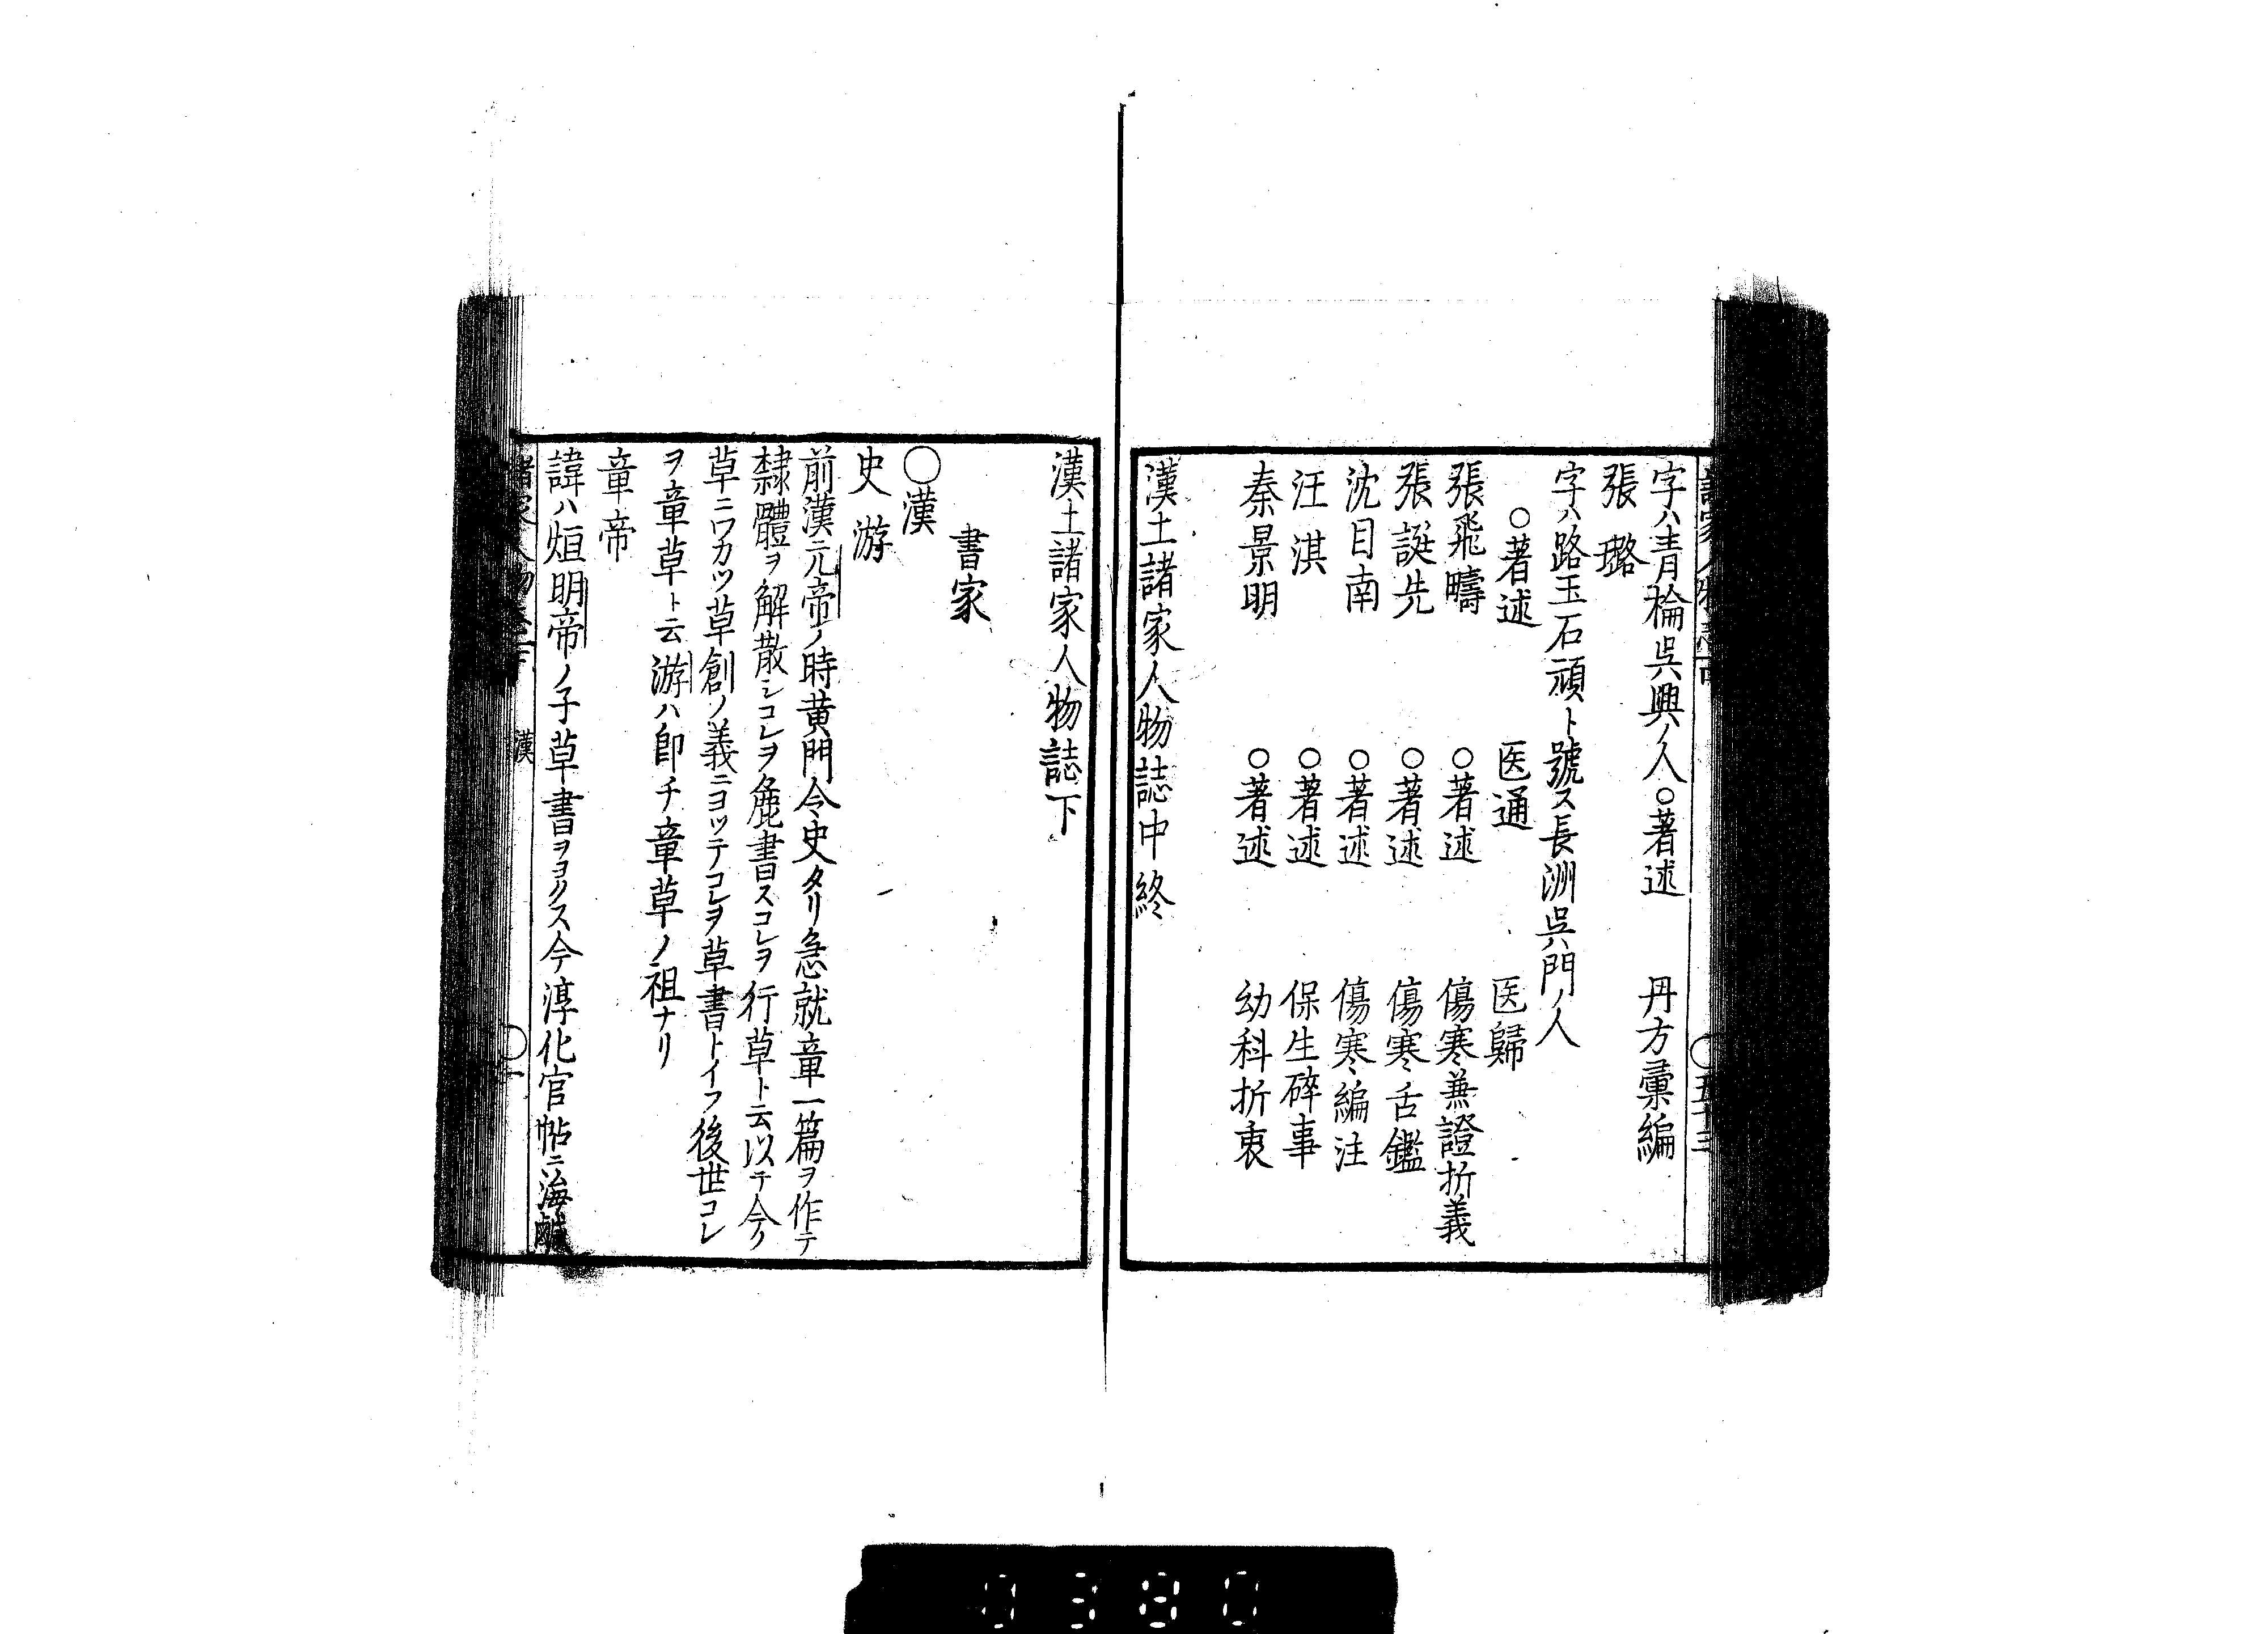 字ハ青棆呉興ノ人○著述 丹方彙編
張璐
字ハ路玉石頑ト號ス長洲呉門ノ人
○著述 医通 医歸
張飛疇 ○著述 傷寒兼證折義
張誕先 ○著述 傷寒舌鑑
沈目南 ○著述 傷寒編注
汪淇 ○著述 保生碎事
秦景明 ○著述 幼科折衷
漢土諸家人物誌中終
漢土諸家人物誌下
書家
○漢
史游
前漢元帝ノ時黄門令史タリ急就章一篇ヲ作テ
隸體ヲ解散シコレヲ麁書スコレヲ行草ト云以テ今ノ
草ニワカツ草創ノ義ニヨツテコレヲ草書トイフ後世コレ
ヲ章草ト云游ハ即チ章草ノ祖ナリ
章帝
諱ハ烜明帝ノ子草書ヲヨクス今淳化官帖ニ海鹹
漢